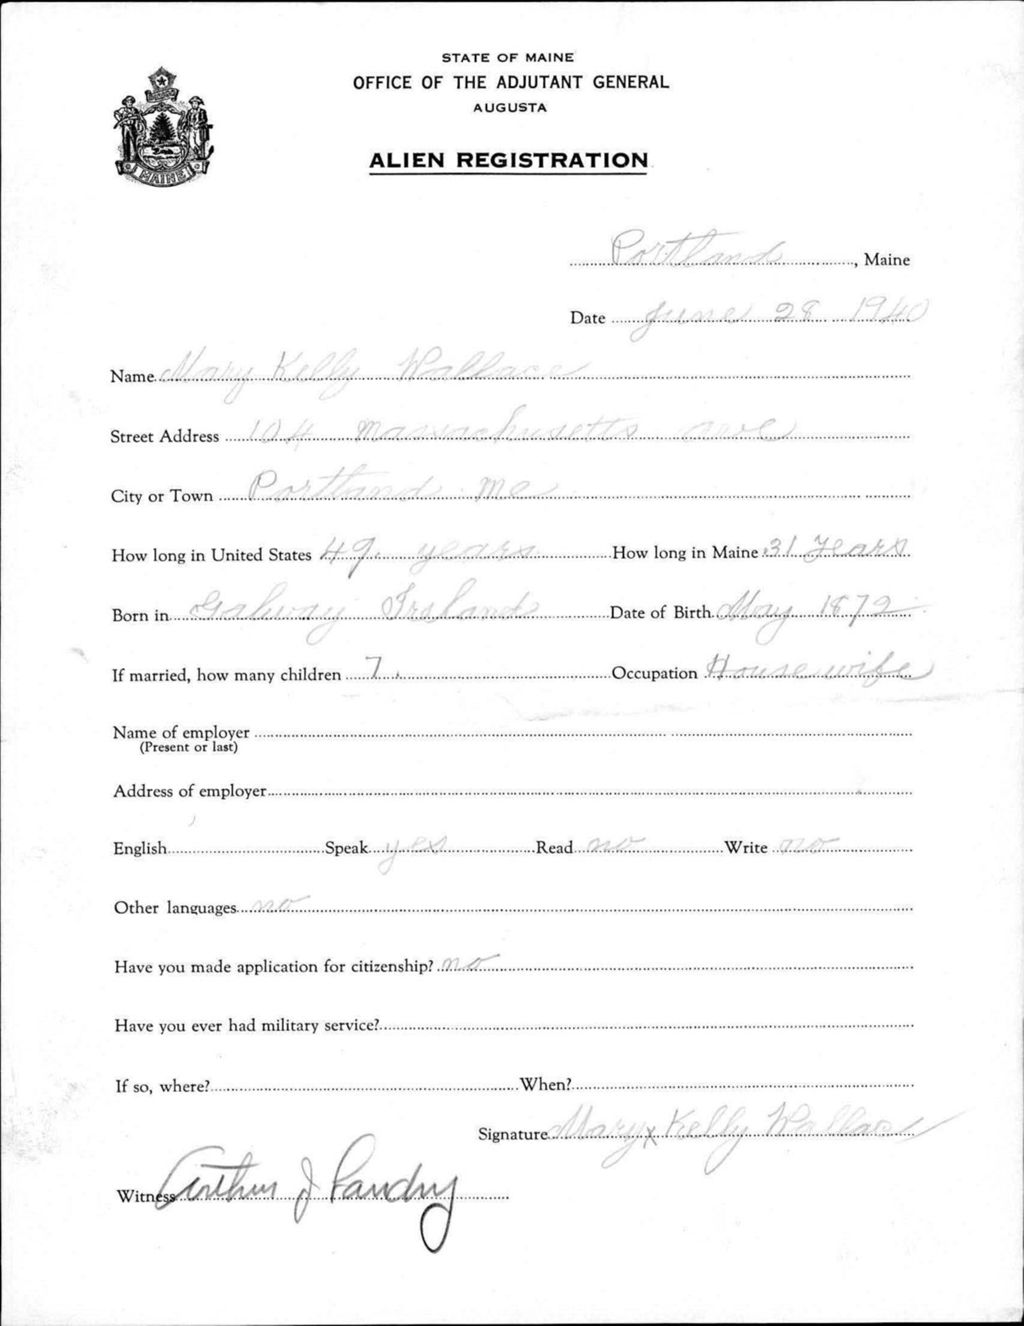 STATE OF MAINE
OFFICE OF THE ADJUTANT GENERAL
AUGUSTA
ALIEN REGISTRATION
MAINE
Portland, Maine
Date June 28 1940
Name Mary Kelly Wallace
Street Address 104 Massachusetts ave
City or Town Portland Me
How long in United States 49 years How long in Maine 31 Years
Born in Galway Irsland Date of Birth May 1872
If married, how many children 7. Occupation House wife
Name of employer
(Present or last)
Address of employer
English Speak yes Read no Write no
Other languages no
Have you made application for citizenship? no
Have you ever had military service?
If so, where? When?
Signature Mary x Kelly Wallace
Witness Arthur J Landry